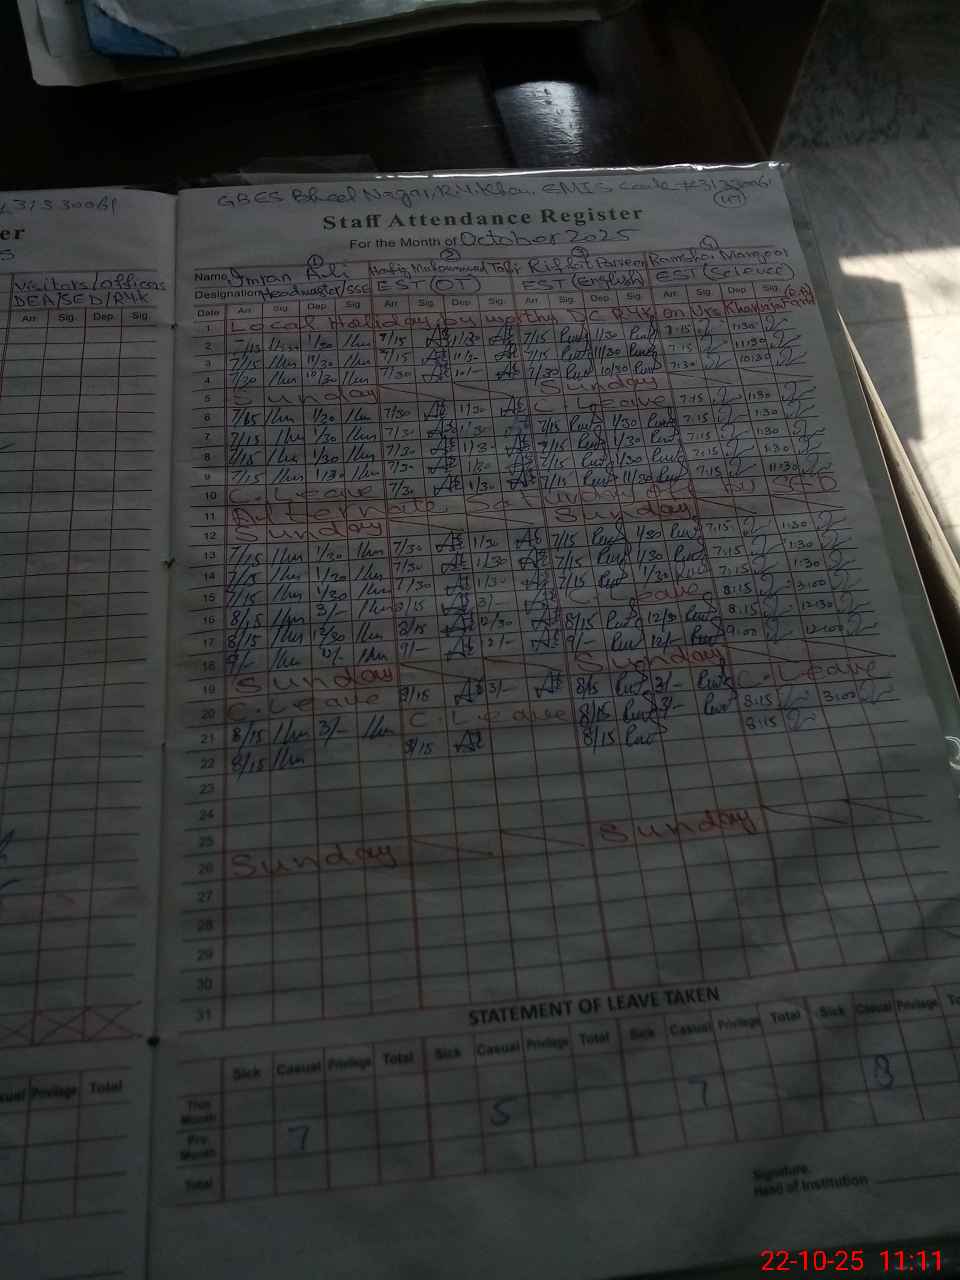 GBES Bheel Nagri, R.Y.Khan, EMIS code #31330061
(47)
Staff Attendance Register
For the Month of October 2025
Visitors/officers
DEA/SED/RYK
Arr. Sig. Dep. Sig.
① ② ③ ④
Name Imran Ali Hafiz Muhammad Riffit Parveen Ramsha Manzoor
Designation Headmaster/SSE EST (OT) EST (English) EST (Science)
Date Arr. Sig. Dep. Sig. Arr. Sig. Dep. Sig. Arr. Sig. Dep. Sig. Arr. Sig. Dep. Sig.
1 Local Holiday by worthy DC RYK on Urs Khawaja
2 7:15 1:30
3 7/15 11/30 7/15 11/30 7/15 11/30 7:15 11:30
4 7/30 10/30 7/30 10/- 7/30 10/30 7:30 10:30
5 Sunday Sunday
6 7/15 1/30 7/30 1/30 C. Leave 7:15 1:30
7 7/15 1/30 7/30 1/30 7/15 1/30 7:15 1:30
8 7/15 1/30 7/30 1/30 7/15 1/30 7:15 1:30
9 7/15 1/30 7/30 1/30 7/15 1/30 7:15 1:30
10 C. Leave 7/30 1/30 7/15 11/30 7:15 11:30
11 Alternate Saturday off by SED
12 Sunday Sunday
13 7/15 1/30 7/30 1/30 7/15 1/30 7:15 1:30
14 7/15 1/30 7/30 1/30 7/15 1/30 7:15 1:30
15 7/15 1/30 7/30 1/30 7/15 1/30 7:15 1:30
16 8/15 3/- 8/15 3/- C. Leave 8:15 3:00
17 8/15 12/30 8/15 12/30 8/15 12/30 8:15 12:30
18 9/- 12/- 9/- 12/- 9/- 12/- 9:00 12:00
19 Sunday Sunday
20 C. Leave 8/15 3/- 8/15 3/- C. Leave
21 8/15 3/- C. Leave 8/15 3/- 8:15 3:00
22 8/15 8/15 8/15 8:15
23
24
25
26 Sunday Sunday
27
28
29
30
31
STATEMENT OF LEAVE TAKEN
Sick Casual Privilege Total Sick Casual Privilege Total Sick Casual Privilege Total Sick Casual Privilege
Casual Privilege Total
This Month
Pre. Month 7 5 7 8
Total
Signature.
Head of Institution
22-10-25 11:11